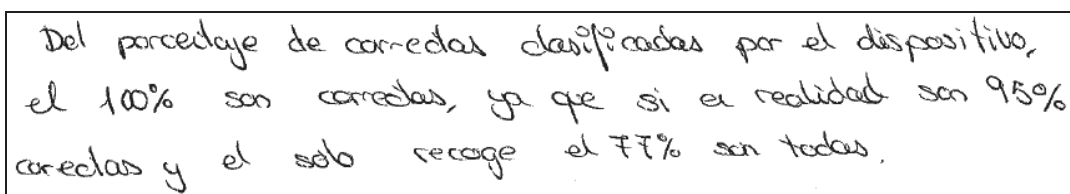 Del porcentaje de correctas clasificadas por el dispositivo,
el 100% son correctas, ya que si en realidad son 95%
correctas y el solo recoge el 77% son todas.